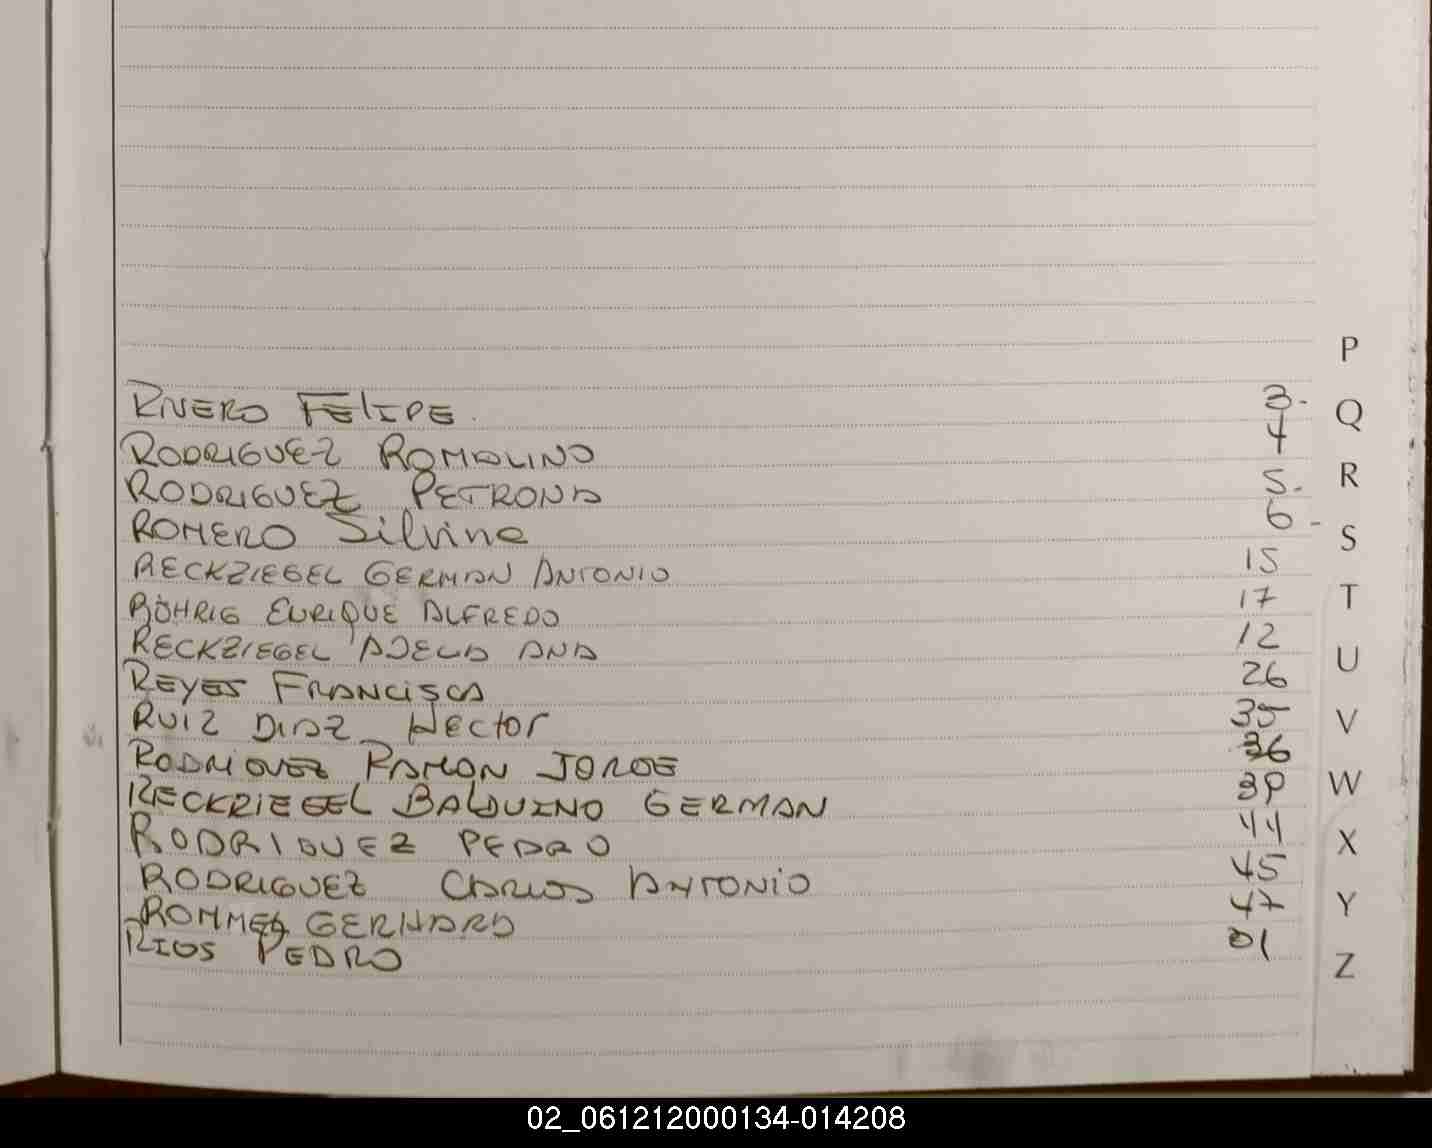 RIVERO FELIPE. 3-
RODRIGUEZ ROMALINO 4
RODRIGUEZ PETRONA 5-
ROMERO Silvina 6-
RECKZIEGEL GERMAN ANTONIO 15
RÖHRIG ENRIQUE ALFREDO 17
RECKZIEGEL ADELA ANA 12
REYES FRANCISCA 26
RUIZ DIAZ HECTOR 35
RODRIGUEZ RAMON JORGE 36
RECKRIEGEL BALDUINO GERMAN 39
RODRIGUEZ PEDRO 44
RODRIGUEZ CARLOS ANTONIO 45
ROMMEL GERHARD 47
RIOS PEDRO 01
P
Q
R
S
T
U
V
W
X
Y
Z
02_061212000134-014208